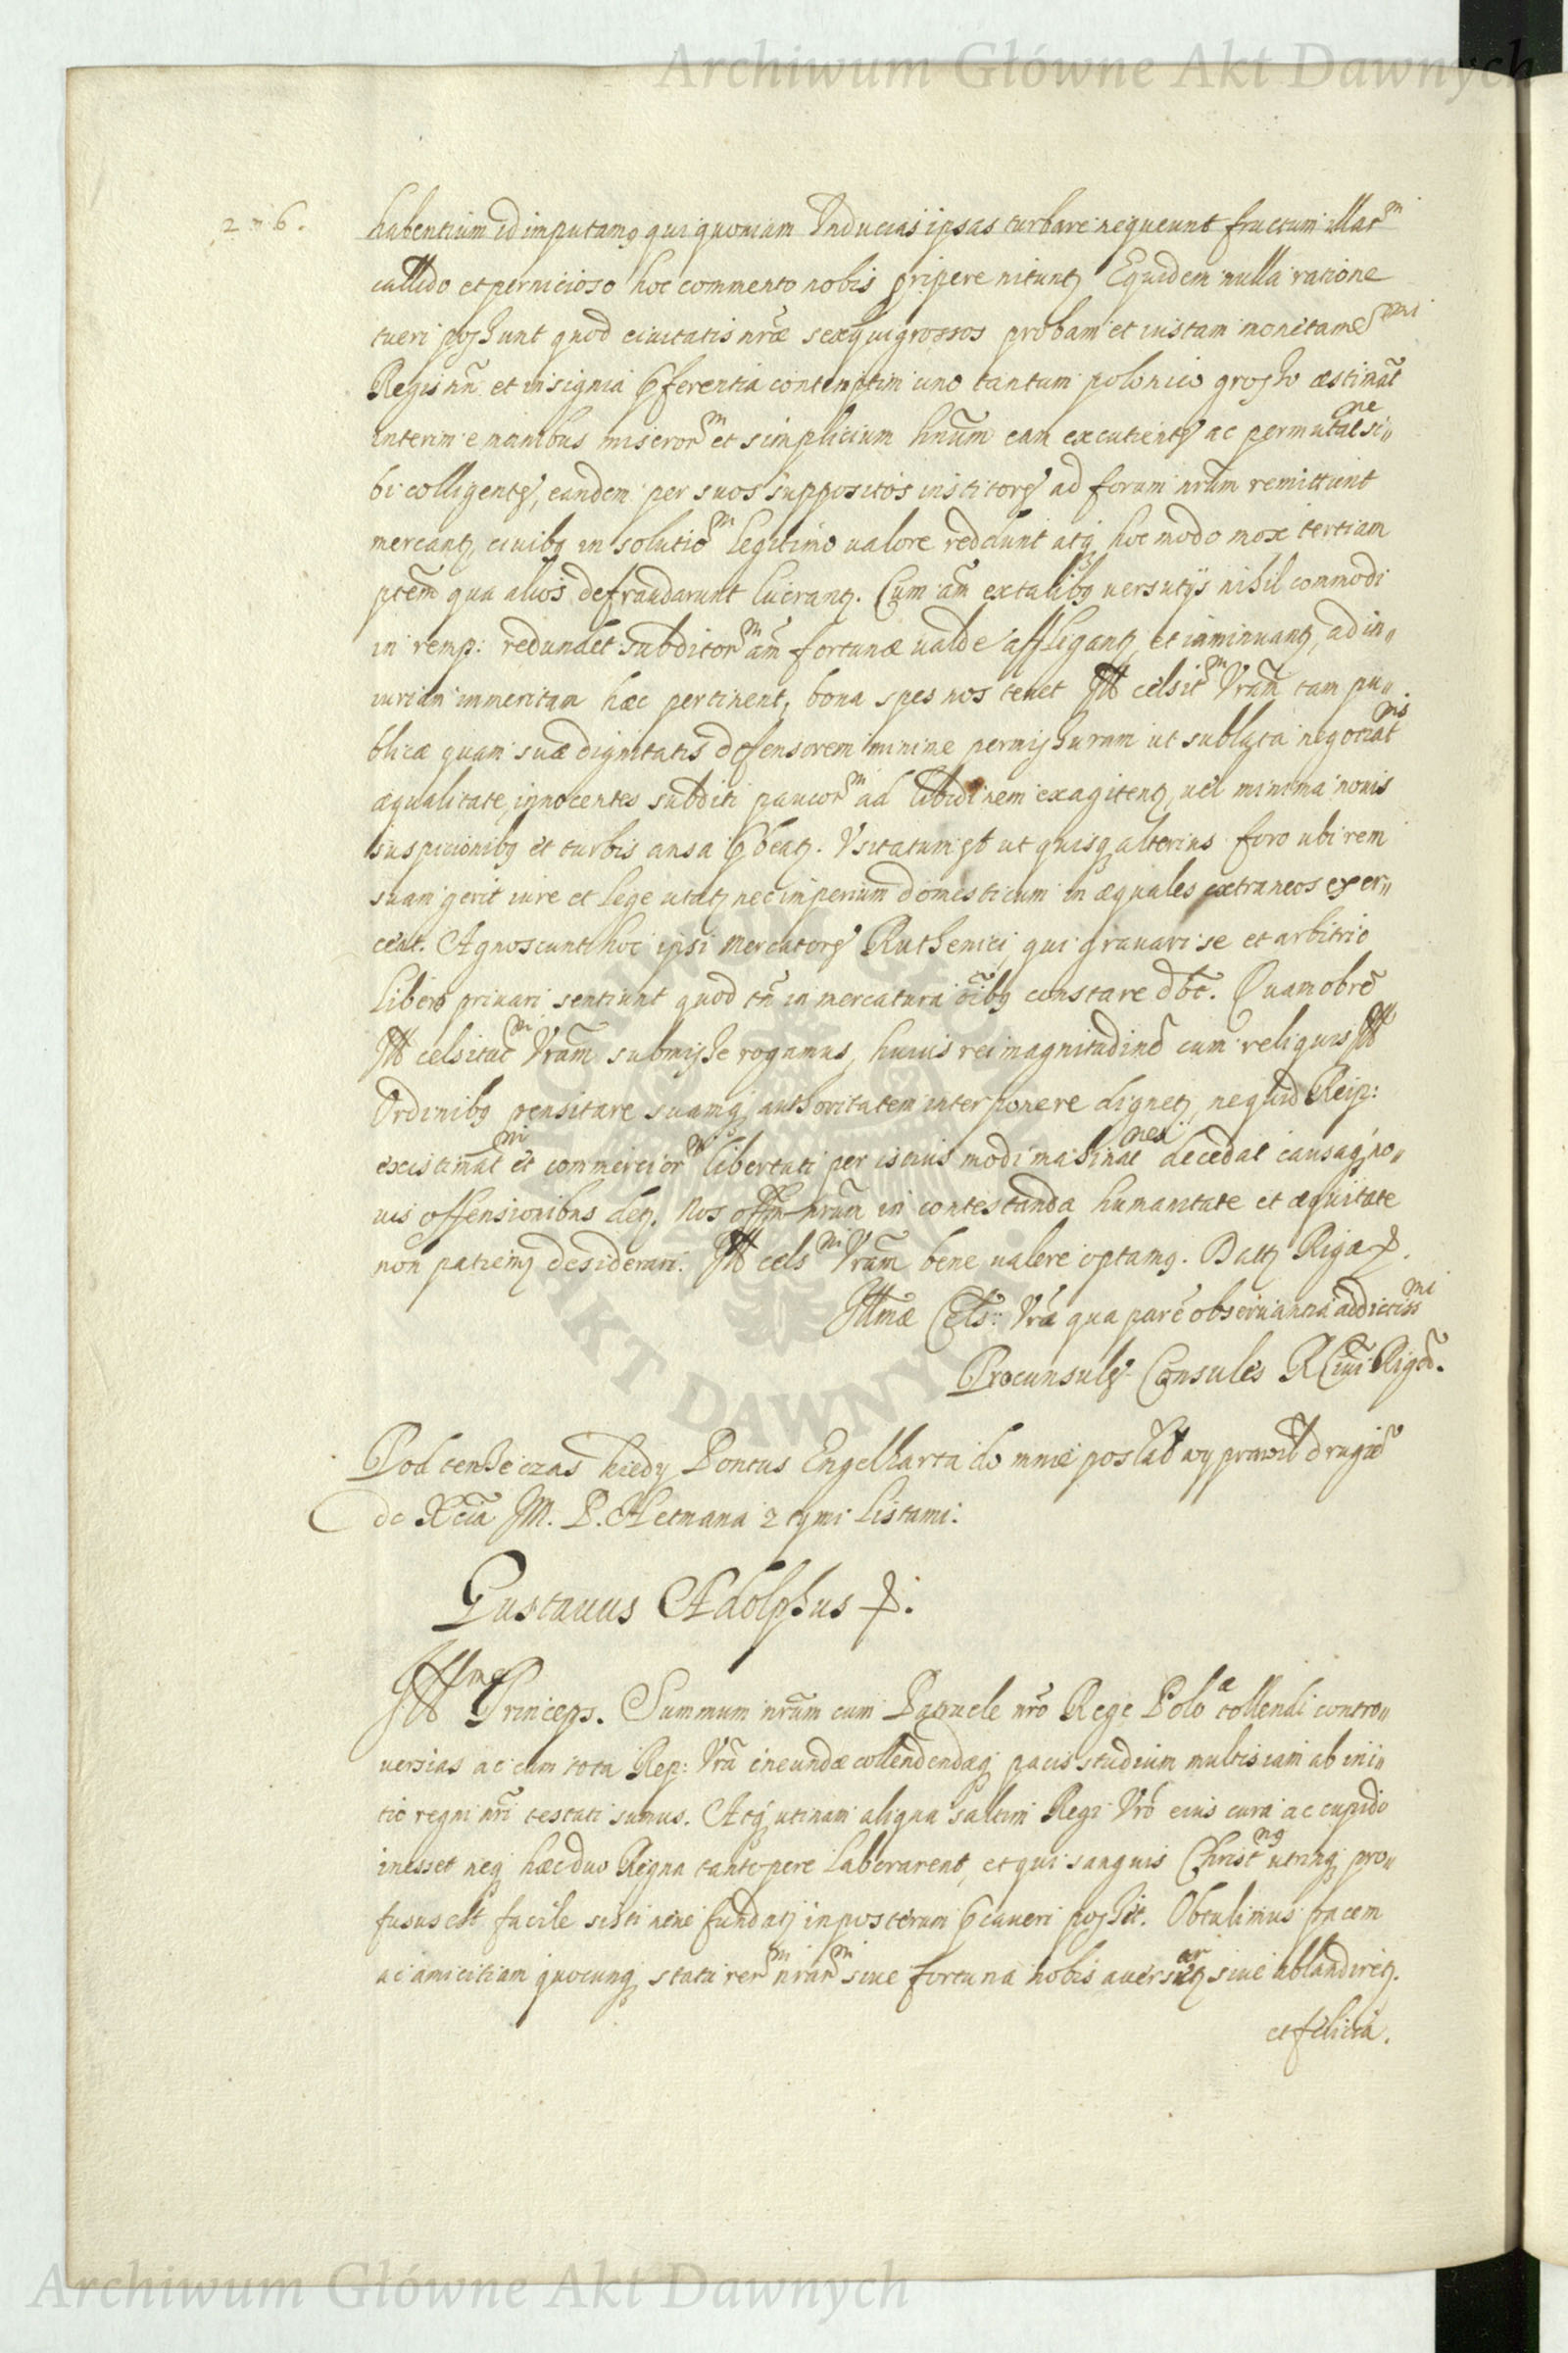 Archiwum Główne Akt Dawnych
276.
habentium id imputamq qui quoniam Inducias ipsas turbare nequeunt fructum illar^m
callido et pernicioso hoc commento nobis pripere nitunt Equidem nulla ratione
tueri possunt quod ciuitatis nrae sexquigrossos probam et iustam monetam S^mi
Regis nri et insignia pferentia contemptim uno tantum polonico grosso aestimāt
interim e manibus miseror^m et simplicium hnūm eam excutientes ac permutat^ne si„
bi colligentes, eandem per suos suppositos institores ad forum nrūm remittunt
mercant ciuibq in solutio^m legitimo ualore reddunt atq hoc modo mox tertiam
ptem qua alios defraudarunt lucrant. Cum am ex talibq uersutijs nihil commodi
in remp: redundet subditor^m am fortunae ualde affligant et imminuant, ad in„
iuriam immeritam haec pertinent, bona spes nos tenet Ill celsit^m Vram tam pu„
blicae quam suae dignitatis defensorem minime permissuram ut sublata negotiat^nis
aequalitate, innocentes subditi paucor^m ad libidinem exagitent, uel minima nouis
suspicionibq et turbis ansa pbeat. Vsitatum est ut quisq alterius foro ubi rem
suam gerit iure et lege utat nec imperium domesticum in aequales extraneos exer„
ceat. Agnoscunt hoc ipsi Mercatores Ruthenici, qui grauari se et arbitrio
libero priuari sentiunt quod tn in mercatura oibq constare dbt. Quamobre
Ill celsitud^m Vram submisse rogamus, huius rei magnitudine cum reliquis Ill
Ordinibq pensitare suamq authoritatem interponere dignet, nequid Reip:
existimat^ni et commercior^m libertati per istius modi machinat^nes decedat causaq no„
uis offensionibus det. Nos offm nrum in contestanda humanitate et aequitate
non patiemq desiderari. Ill cels^ni Vram bene ualere optamq. Datt Rigae.
Illmae Cels: Vrae qua pare obseruantia addictiss^mi
Proconsules Consules R Ciui Rigen.
Pod tenże czas kiedy Pontus Engelharta do mnie posłał wyprawił drugie
do Xcia JM. P. Hetmana z tymi listami.
Gustauus Adolphus.
Ill^me Princeps. Summum nrum cum Patruele nro Rege Polo^a tollendi contro„
uersias ac cum tota Rep: Vra ineundae collendendaeq pacis studium multis iam ab ini„
tio regni nri testati sumus. Atq utinam aliqua saltim Regi Vro eius cura ac cupido
inesset neq haec duo Regna tantopere laborarent, et qui sanguis Christ^nq utrinq pro„
fusus est facile sisti neue fundat inposterum pcaueri possit. Obtulimus pacem
ac amicitiam quocunq statu rer^m nrar^m siue fortuna nobis auersaret siue ablandiret.
et felicia.
Archiwum Główne Akt Dawnych